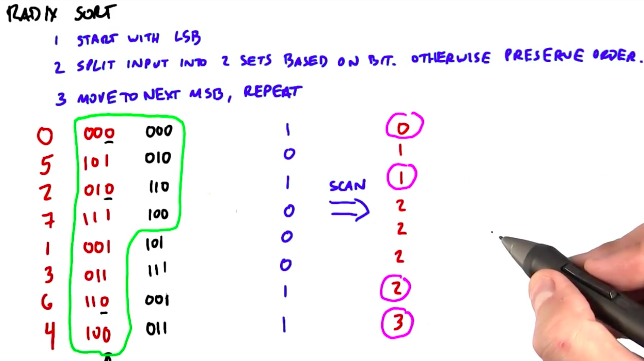 RADIX SORT
1 START WITH LSB
2 SPLIT INPUT INTO 2 SETS BASED ON BIT. OTHERWISE PRESERVE ORDER.
3 MOVE TO NEXT MSB, REPEAT
0 000 000 1 0
5 101 010 0 1
2 010 110 1 SCAN 1
7 111 100 0 2
1 001 101 0 2
3 011 111 0 2
6 110 001 1 2
4 100 011 1 3